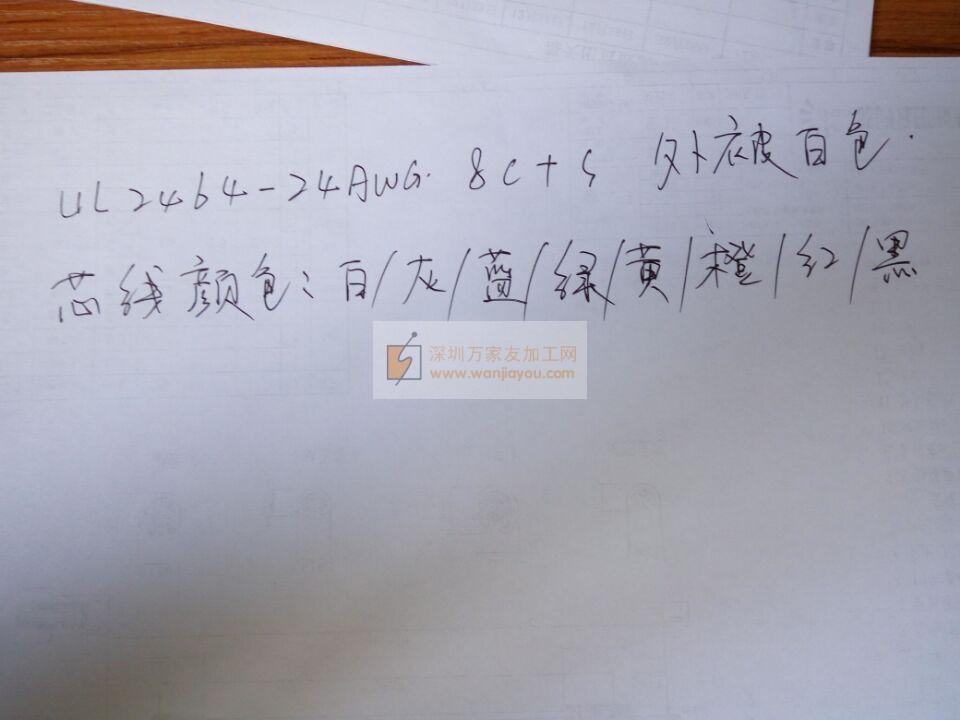 UL2464-24AWG. 8C+S 外被白色.
芯线颜色:白/灰/蓝/绿/黄/橙/红/黑
深圳万家友加工网
www.wanjiayou.com